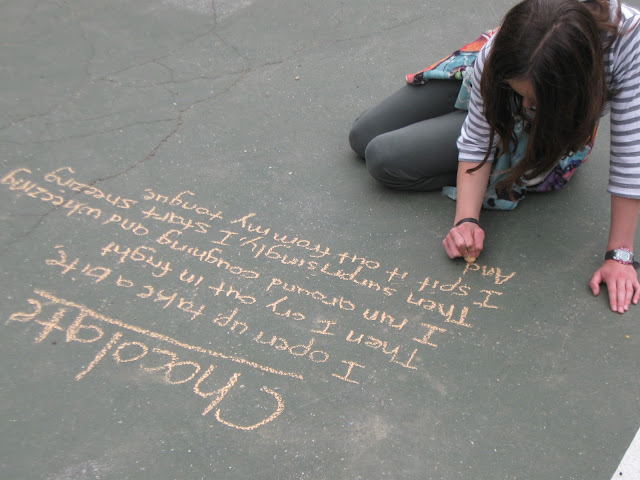 Chocolate
I open up take a bite,
Then I cry out in fright
I run around coughing and wheezing
Then surprisingly I start sneezing
I spit it out from my tongue.
And